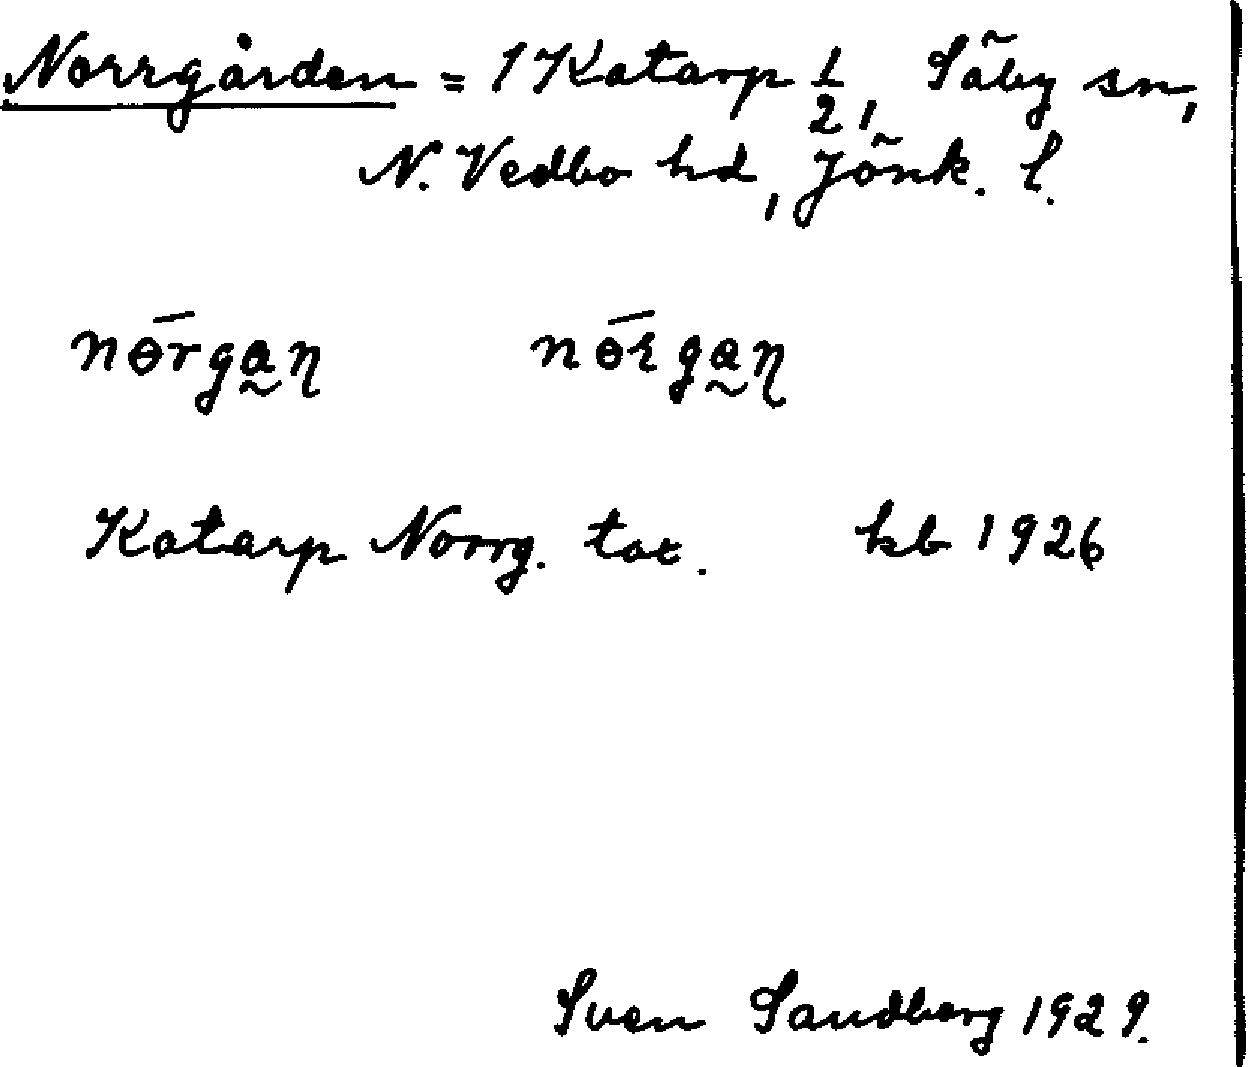 Norrgården = 1 Katarp 1/2, Säby sn,
N. Vedbo hd, Jönk. l.
nɵ́rga̰ɳ nɵ́ɽga̰ɳ
Katarp Norrg. tax. kb 1926
Sven Sandberg 1929.